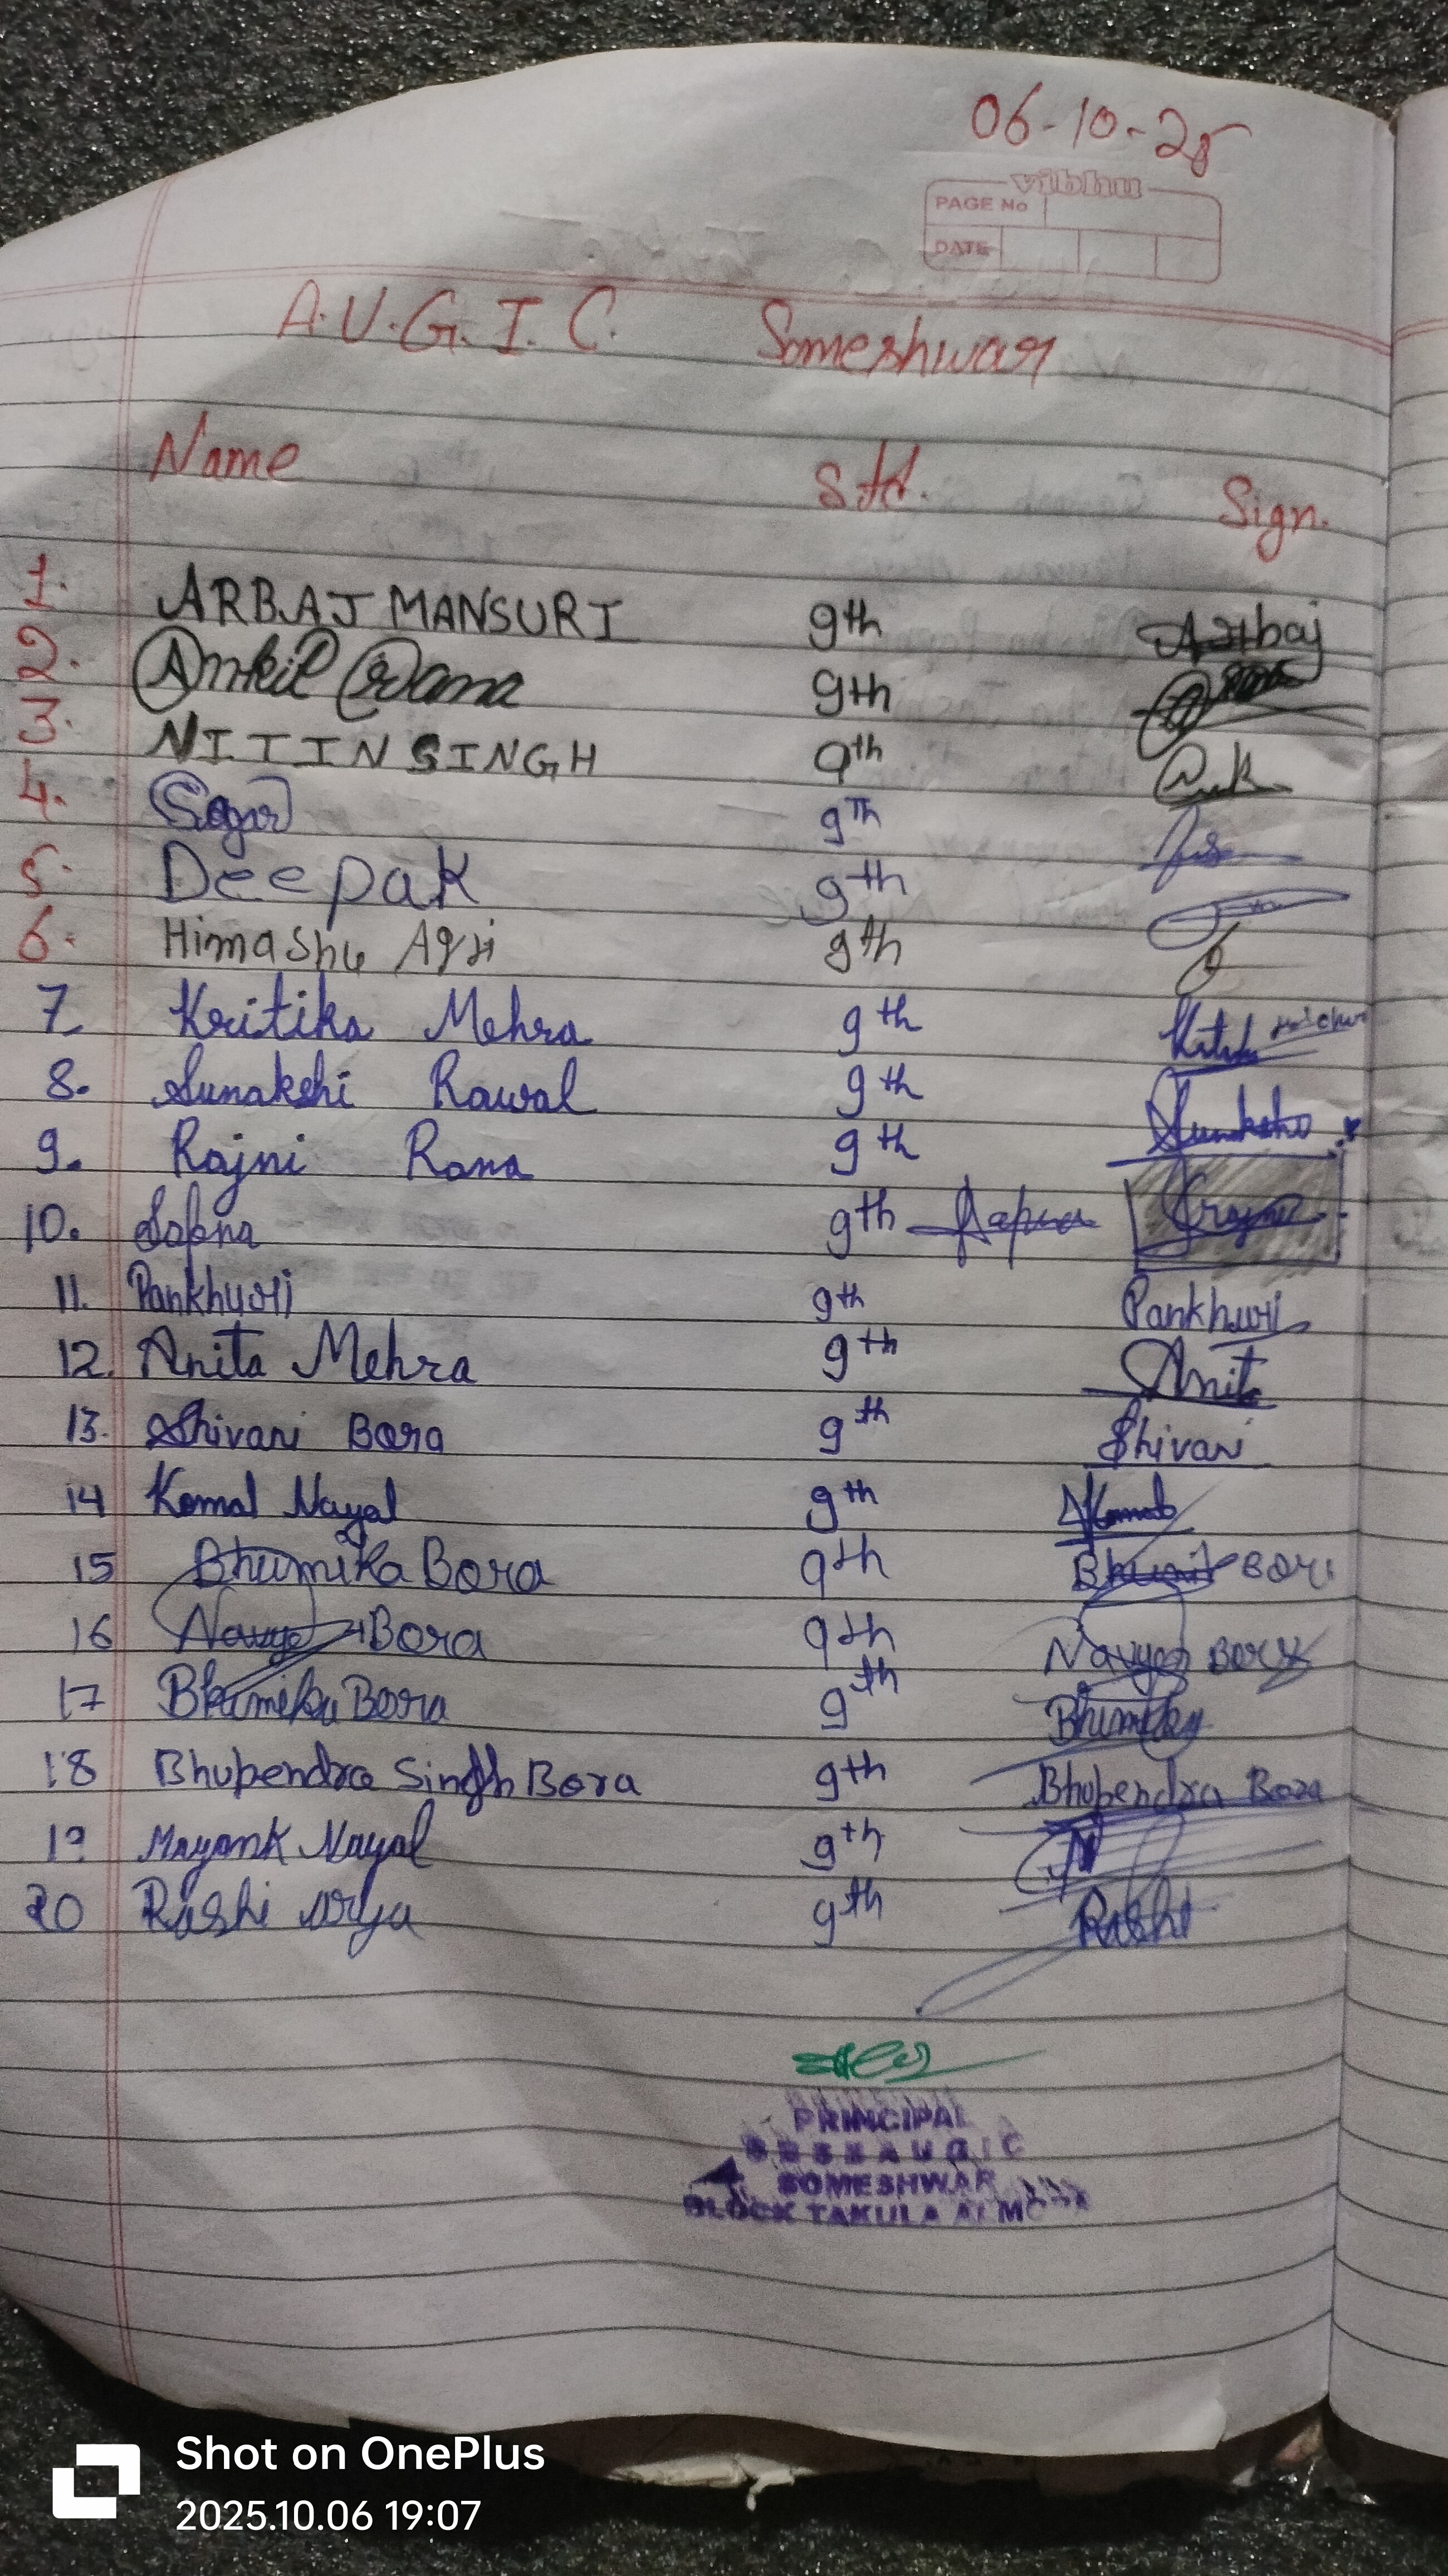 06-10-25
vibhu
PAGE No
DATE
A.U.G.I.C. Someshwar
Name Std. Sign.
1. ARBAJ MANSURI 9th Arbaj
2. Ankit Rana 9th
3. NITIN SINGH 9th
4. Sagar 9Th
5. Deepak 9th
6. Himashu Agri 9th
7 Kritika Mehra 9th
8. Sunakshi Rawal 9th Sunakshi
9. Rajni Rana 9th Rajni
10. Sapna 9th Sapna
11. Pankhuri 9th Pankhuri
12. Anita Mehra 9th Anita
13. Shivani Bora 9th Shivani
14 Komal Nayal 9th Komal
15 Bhumika Bora 9th Bora
16 Navya Bora 9th Navya Bora
17 Bhumika Bora 9th Bhumika
18 Bhupendra Singh Bora 9th Bhupendra Bora
19 Mayank Nayal 9th
20 Rashi arya 9th Rashi
PRINCIPAL
A U G I C
SOMESHWAR
BLOCK TAKULA ALMORA
Shot on OnePlus
2025.10.06 19:07